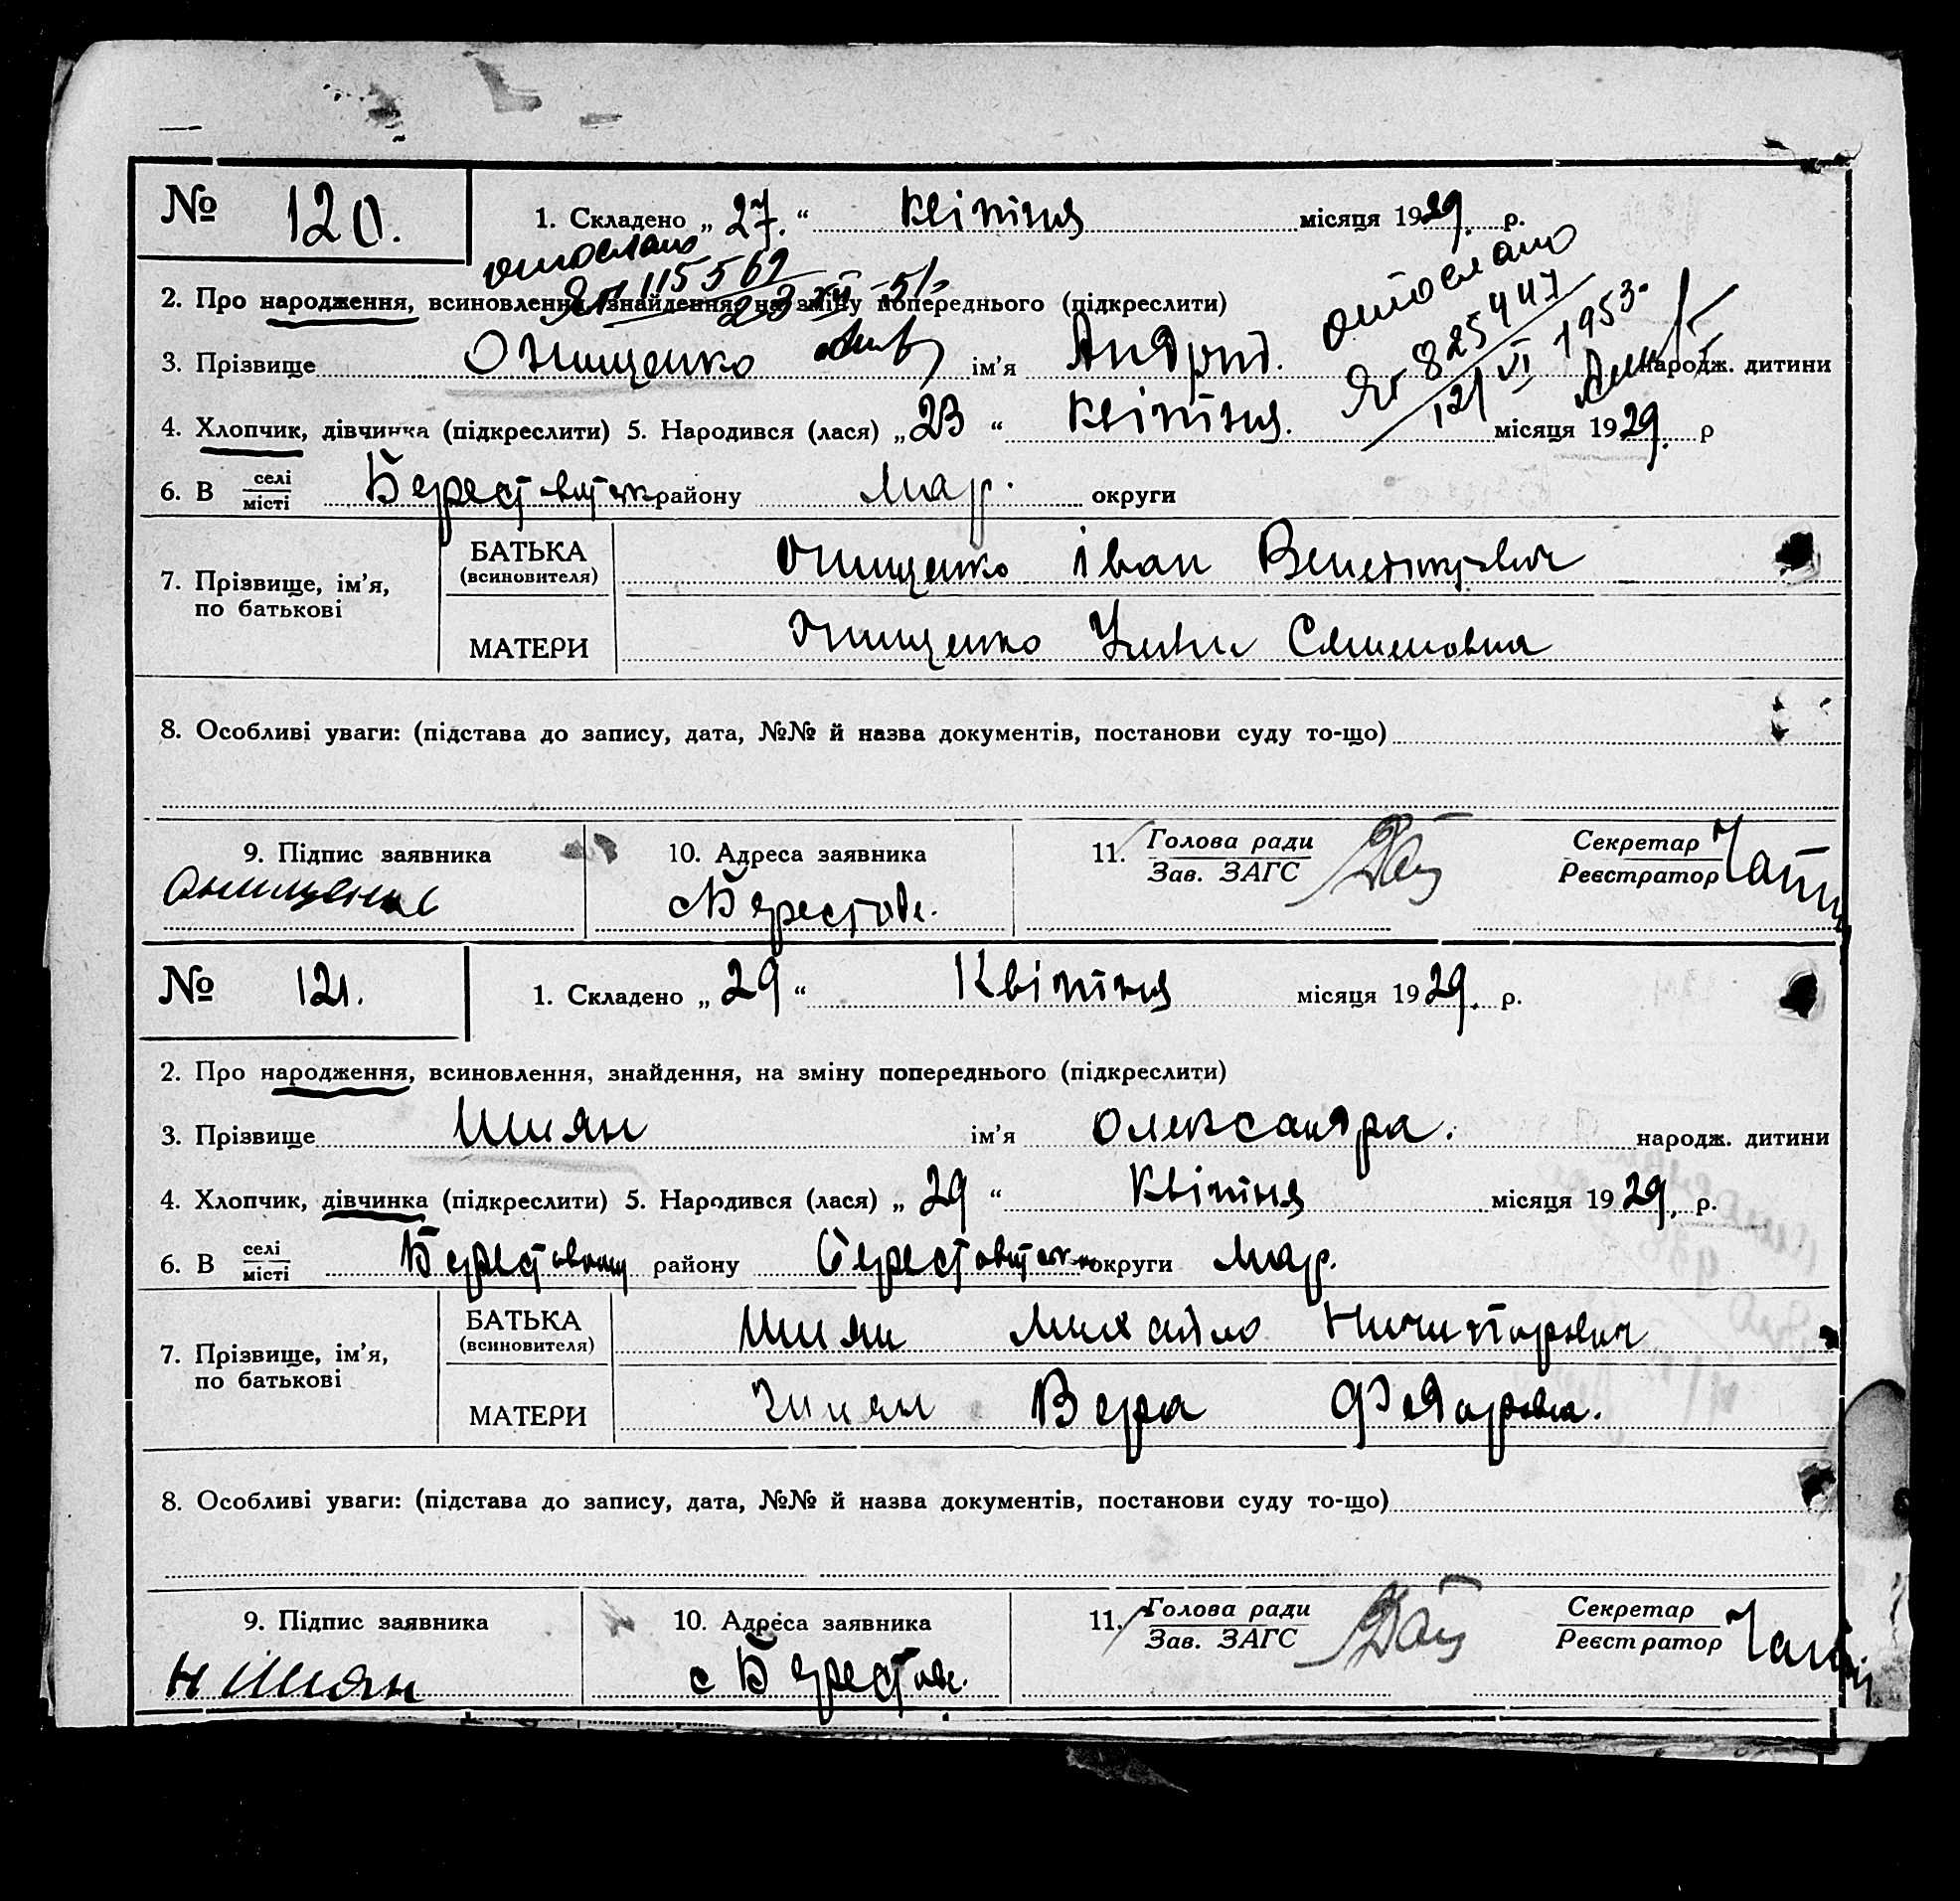 № 120. 1. Складено „27.“ квітня місяця 1929. р.
отослано
2. Про народження, всиновлення, знайдення, на зміну попереднього (підкреслити)
отослано
3. Прізвище Онищенко ім'я Андрій. народж. дитини
4. Хлопчик, дівчинка (підкреслити) 5. Народився (лася) „23“ квітня. місяця 1929. р
6. В селі місті Берестовитськ району Мар. округи
7. Прізвище, ім'я, по батькові
БАТЬКА (всиновителя) Онищенко Іван
МАТЕРИ Онищенко
8. Особливі уваги: (підстава до запису, дата, №№ й назва документів, постанови суду то-що)
9. Підпис заявника 10. Адреса заявника 11. Голова ради Зав. ЗАГС Секретар Реєстратор
Онищенко с Берестове.
№ 121. 1. Складено „29“ Квітня місяця 1929. р.
2. Про народження, всиновлення, знайдення, на зміну попереднього (підкреслити)
3. Прізвище Шиян ім'я Олександра. народж. дитини
4. Хлопчик, дівчинка (підкреслити) 5. Народився (лася) „29“ Квітня місяця 1929. р.
6. В селі місті Берестовому району округи Мар.
7. Прізвище, ім'я, по батькові
БАТЬКА (всиновителя) Шиян Михайло Ничипорович
МАТЕРИ Шиян Вера Федоровна.
8. Особливі уваги: (підстава до запису, дата, №№ й назва документів, постанови суду то-що)
9. Підпис заявника 10. Адреса заявника 11. Голова ради Зав. ЗАГС Секретар Реєстратор
Н Шиян с Берестове.